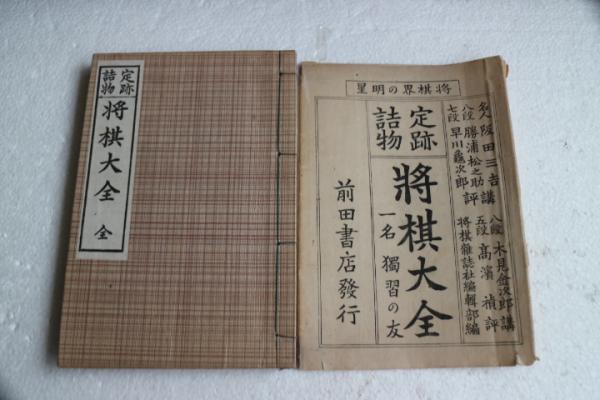 定跡
詰物
将棋大全
全
将棋界の明星
名人阪田三吉講
八段勝浦松之助評
七段早川龜次郎
八段木見金次郎講
五段高濱禎評
将棋雜誌社編輯部編
定跡
詰物
將棋大全
一名 獨習の友
前田書店發行